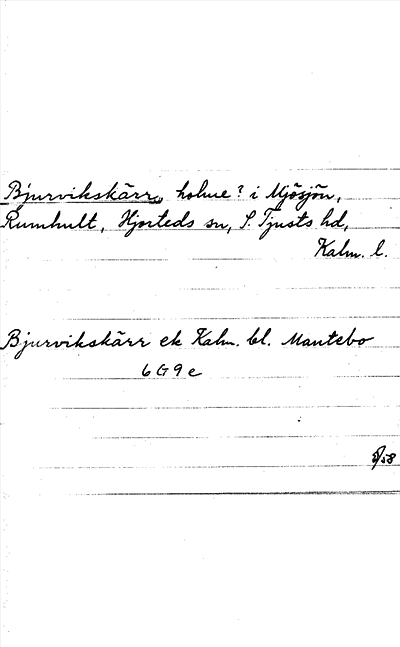 Bjurvikskärr, holme? i Mjösjön,
Rumhult, Hjorteds sn, S. Tjusts hd,
Kalm. l.
Bjurvikskärr ek Kalm. bl. Mantebo
6G9e
/58